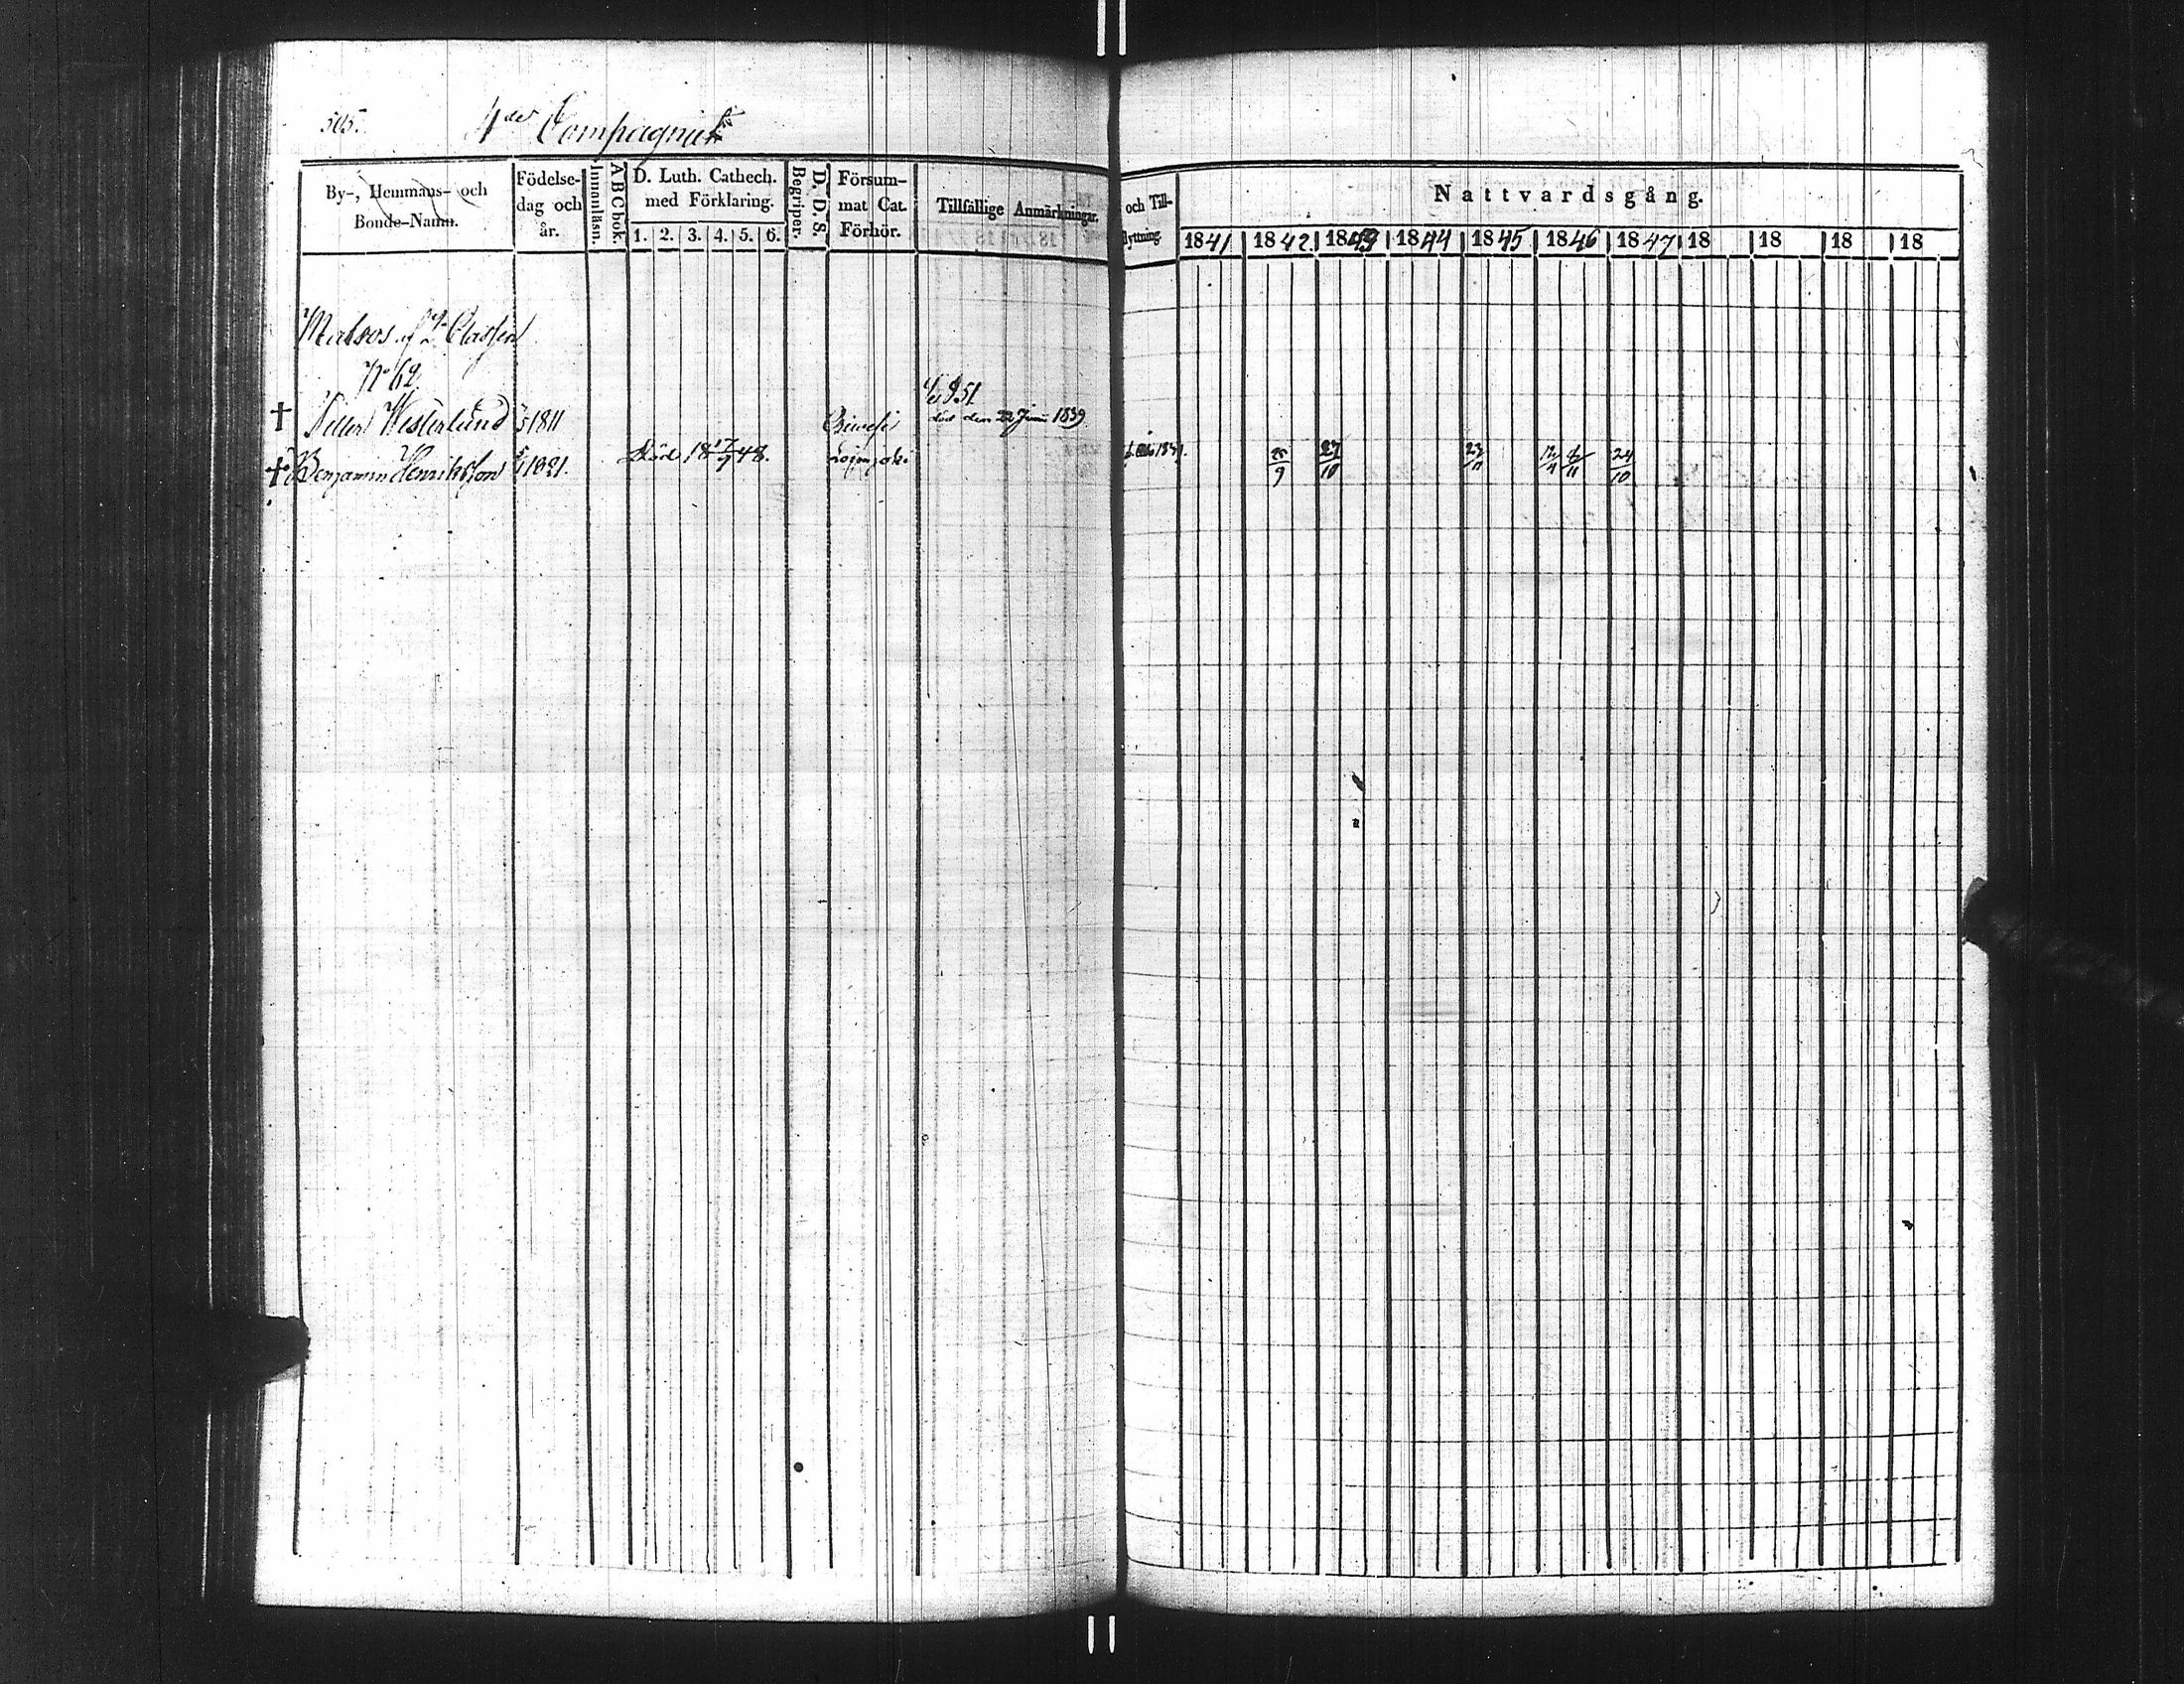 505.
4de Compagniet
By-, Hemmans- och Bonde-Namn.
Födelse-dag och år.
Innanläsn.
A B C bok.
D. Luth. Cathech. med Förklaring.
1. 2. 3. 4. 5. 6.
Begriper.
D. D. S.
Försum-mat Cat. Förhör.
Tillfällige Anmärkningar.
och Till-
flyttning.
Nattvardsgång.
1841 1842 1843 1844 1845 1846 1847 18 18 18 18
Matros af 2 Classen
No 62
Petter Westerlund 1811 död den 22 Juni 1839
Benjamin Henriksson 1821. Död 18 17/9 48. Loimjoki 27/10 24/10